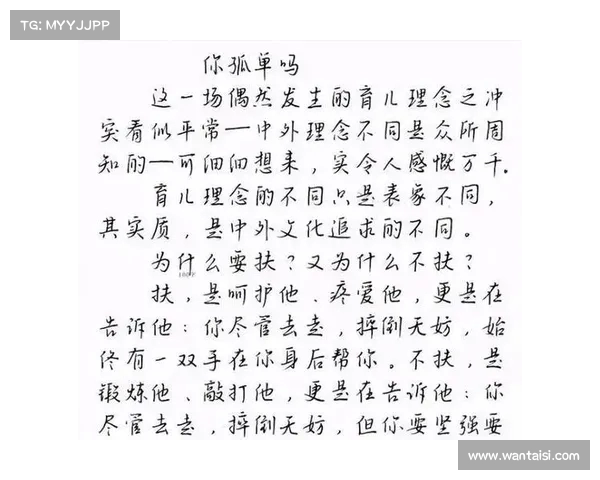 TG: MYYJJPP
你孤单吗
这一场偶然发生的育儿理念之冲
实看似平常一中外理念不同是众所周
知的一可细细想来，实令人感慨万千。
育儿理念的不同只是表象不同，
其实质，是中外文化追求的不同。
为什么要扶？又为什么不扶？
扶，是呵护他、疼爱他，更是在
告诉他：你尽管去走，摔倒无妨，始
终有一双手在你身后帮你。不扶，是
锻炼他、敲打他，更是在告诉他：你
尽管去走，摔倒无妨，但你要坚强要
www.wantaisi.com